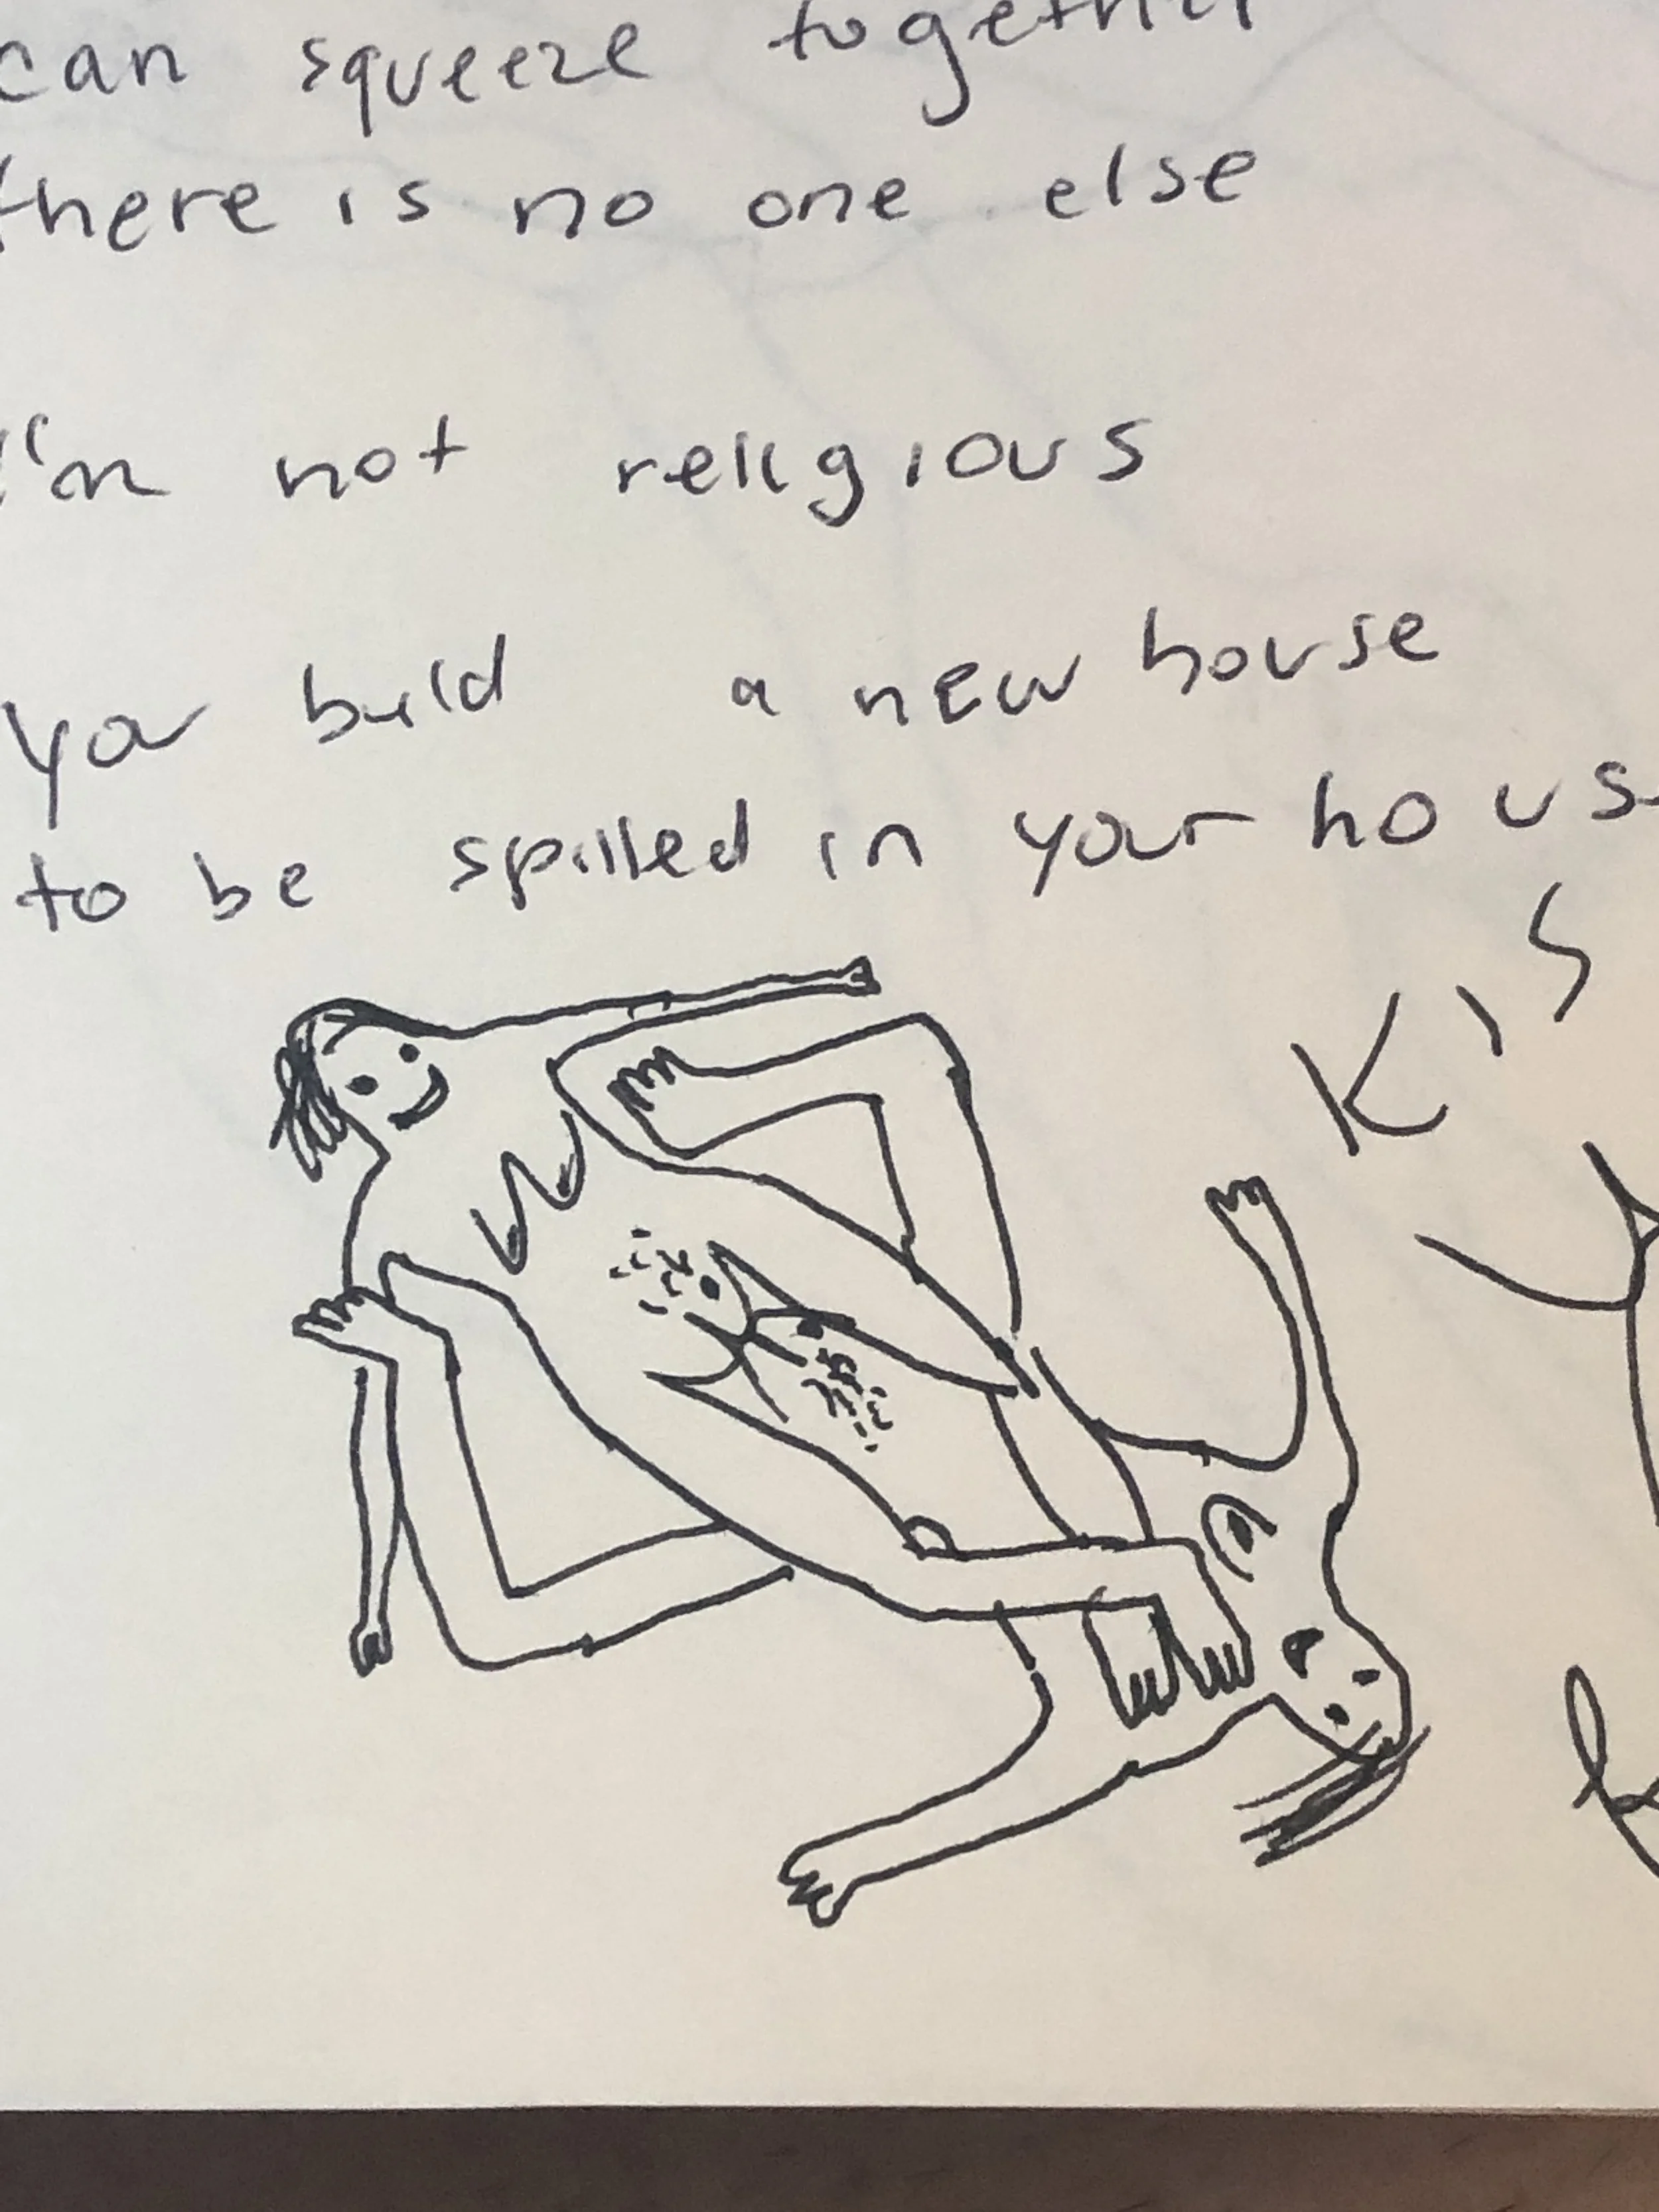 can squeeze together
there is no one else
I'm not religious
you build a new house
to be spilled in your hous
Kis